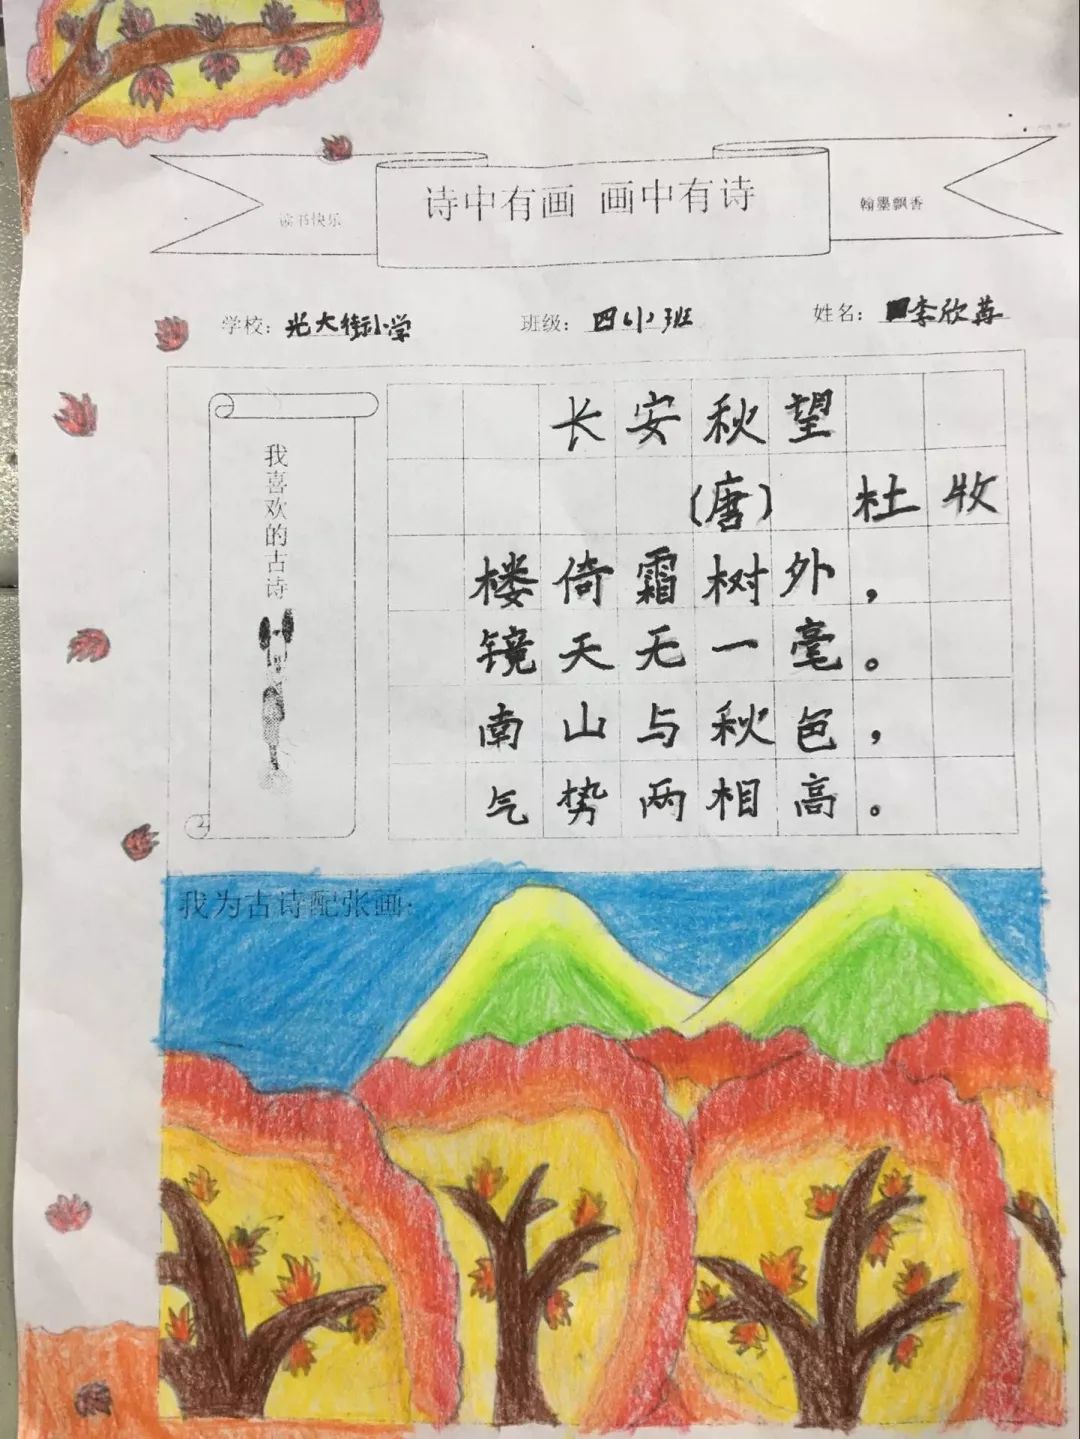 诗中有画 画中有诗
读书快乐
翰墨飘香
学校：光大街小学
班级：四（1）班
姓名：李欣苒
我喜欢的古诗
长安秋望
（唐） 杜牧
楼倚霜树外，
镜天无一毫。
南山与秋色，
气势两相高。
我为古诗配张画